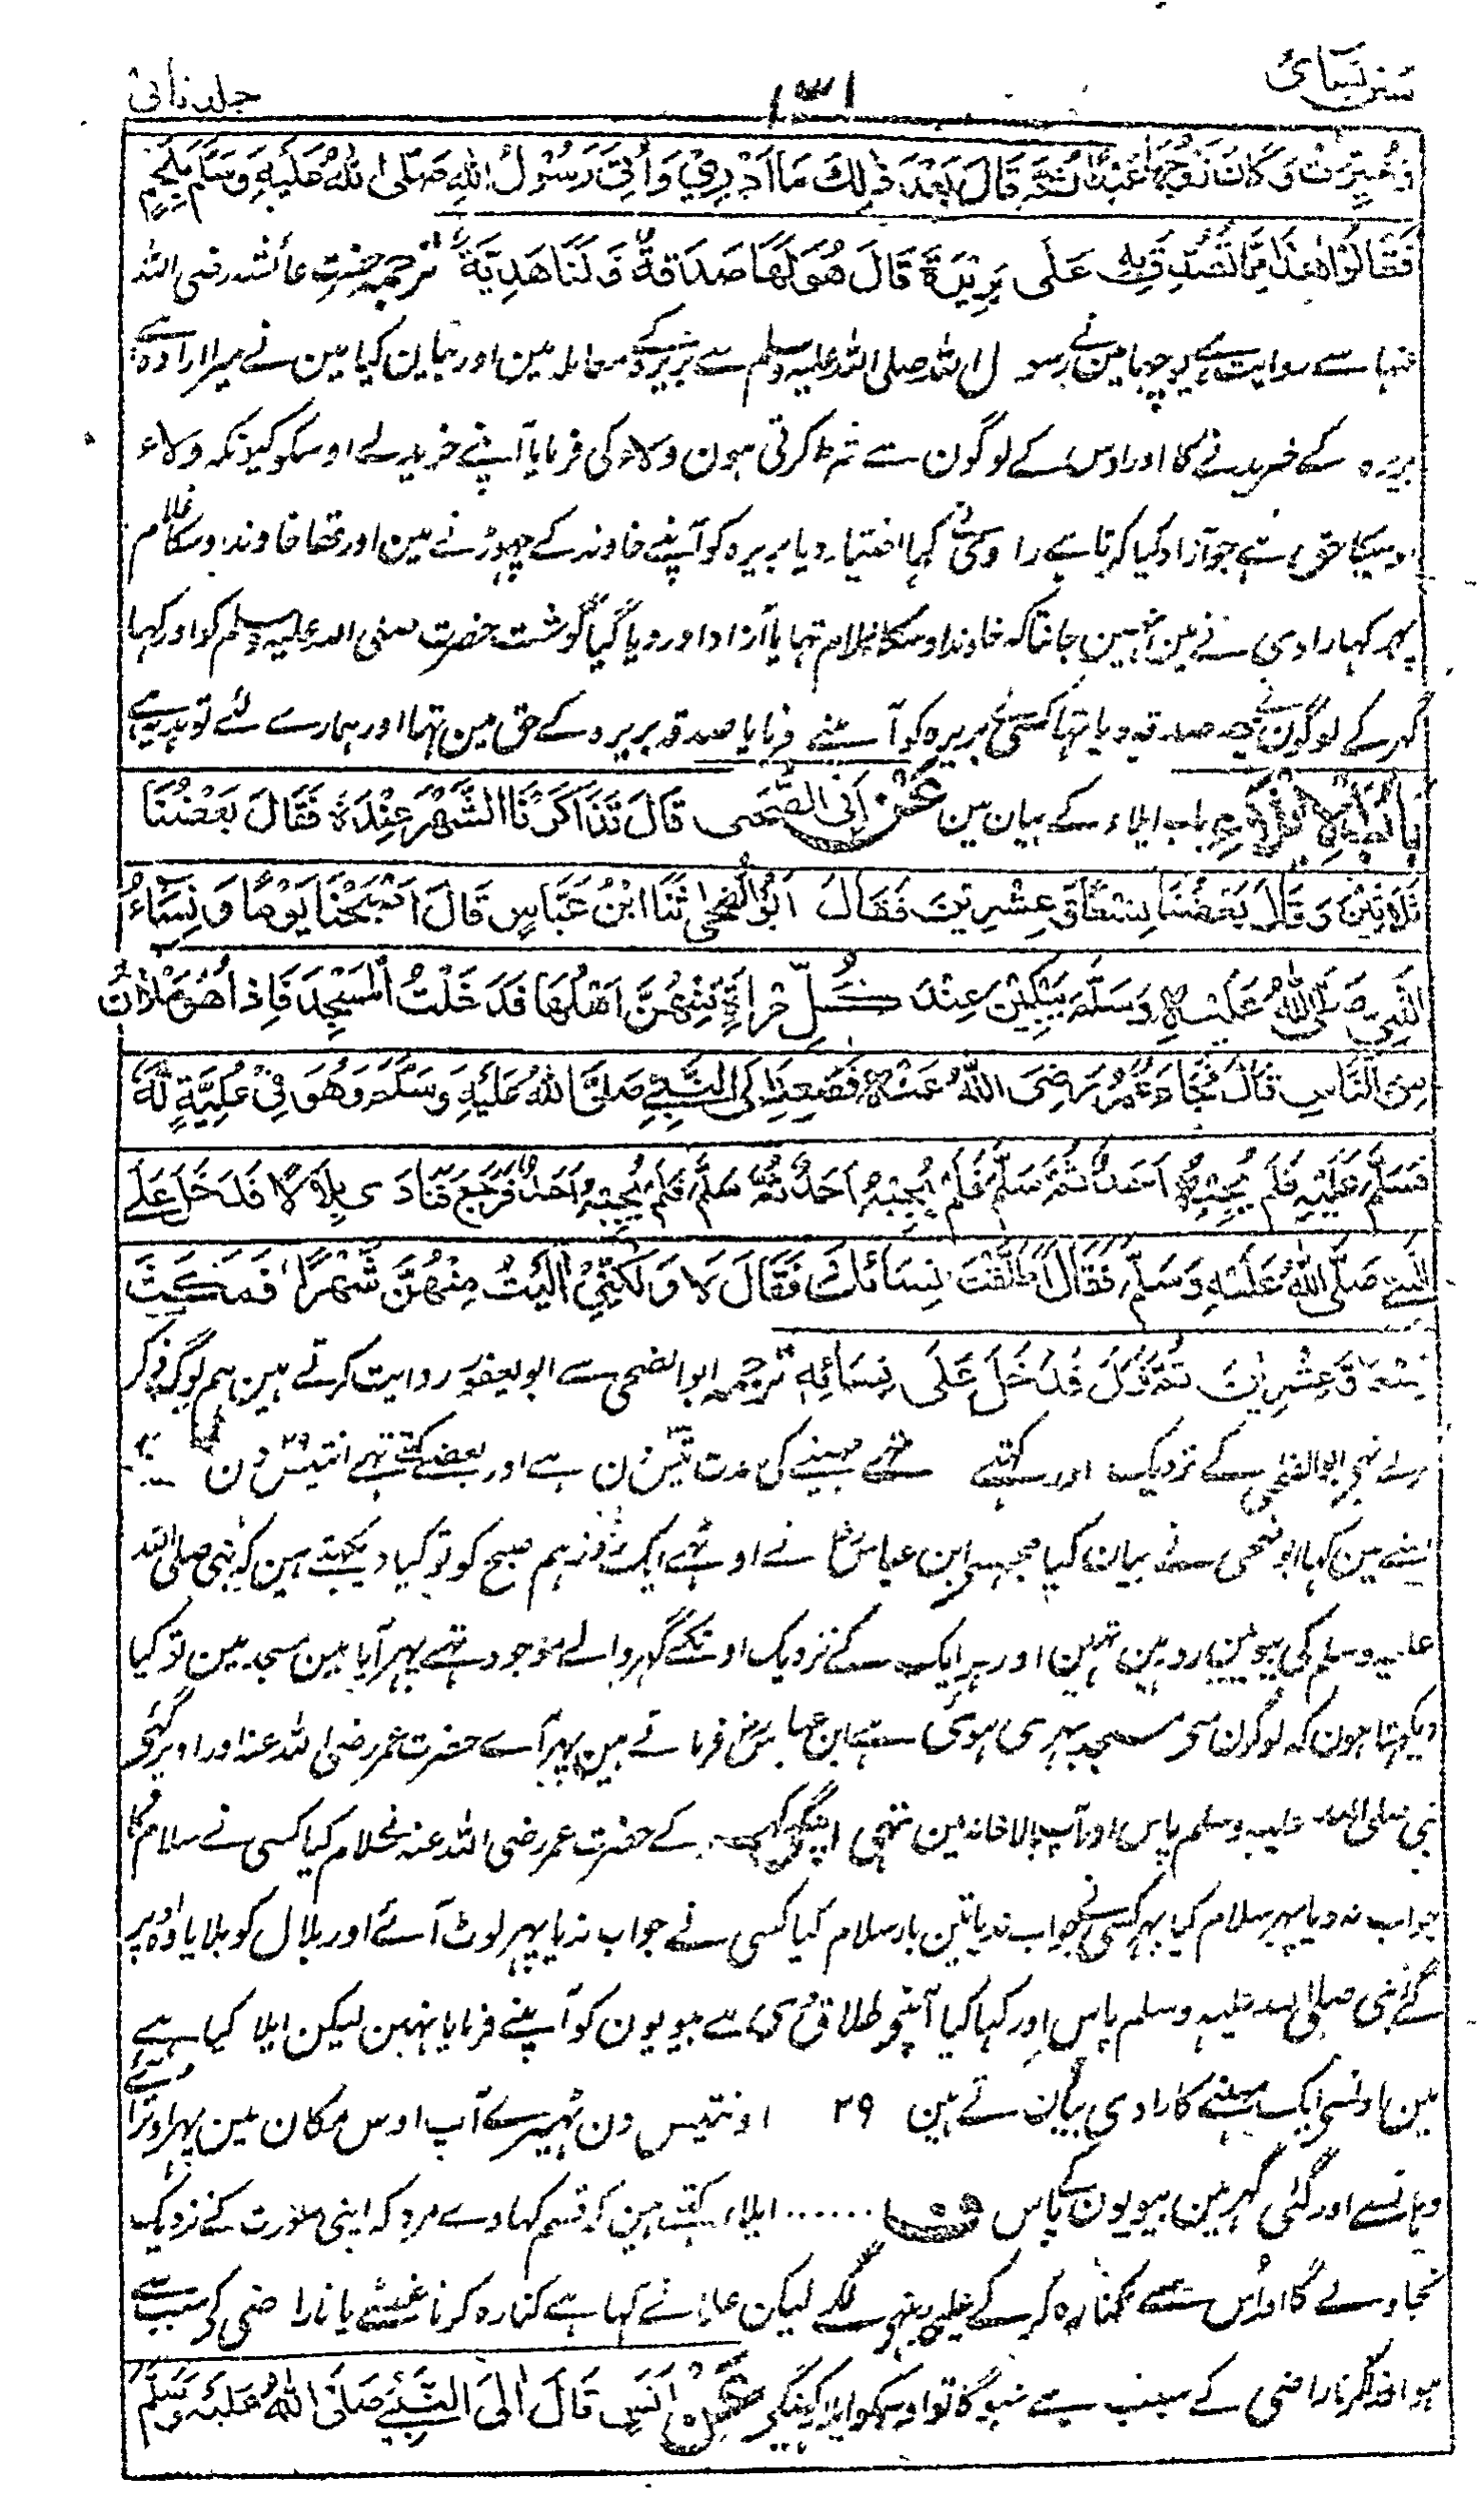 سنن نسائی ۱۳۱ جلد ثانی
وَخُيِّرَتْ وَكَانَ زَوْجُهَا عَبْدًا ثُمَّ قَالَ بَعْدَ ذٰلِكَ مَا اَدْرِيْ وَاُتِيَ رَسُوْلُ اللهِ صَلَّى اللهُ عَلَيْهِ وَسَلَّمَ بِلَحْمٍ
فَقَالُوْا هٰذَا مِمَّا تُصُدِّقَ بِهٖ عَلٰى بَرِيْرَةَ قَالَ هُوَ لَهَا صَدَقَةٌ وَلَنَا هَدِيَّةٌ ترجمہ حضرت عائشہ رضی اللہ
عنہا سے روایت ہے پوچہا مین نے رسول اللہ صلی اللہ علیہ وسلم سے بریرہ کے معاملہ مین اور بیان کیا مین نے میرا ارادہ ہے
بریرہ کے خریدنے کا اور اوس کے لوگون سے شرط کرتی ہون ولاء کی فرمایا آپنے خرید لے اوسکو کیونکہ ولاء
اوسیکا حق ہے جو آزاد کیا کرتا ہے راوی نے کہا اختیار دیا بریرہ کو آپنے خاوند کے چہوڑنے مین اور تھا خاوند اوسکا غلام
پہر کہا راوی نے مین نہین جانتا کہ خاوند اوسکا غلام تہا یا آزاد اور دیا گیا گوشت حضرت صلی اللہ علیہ وسلم کو اور کہا
گہر کے لوگون نے یہ صدقہ دیا تہا کسی نے بریرہ کو آپنے فرمایا صدقہ بریرہ کے حق مین تہا اور ہمارے لئے تو ہدیہ ہے
بَابُ الْاِيْلَاءِ باب ایلاء کے بیان مین عَنْ اَبِي الضُّحٰى قَالَ تَذَاكَرْنَا الشَّهْرَ عِنْدَهٗ فَقَالَ بَعْضُنَا
ثَلٰثِيْنَ وَقَالَ بَعْضُنَا تِسْعًا وَّعِشْرِيْنَ فَقَالَ اَبُو الضُّحٰى ثَنَا ابْنُ عَبَّاسٍ قَالَ اَصْبَحْنَا يَوْمًا وَنِسَاءُ
النَّبِيِّ صَلَّى اللهُ عَلَيْهِ وَسَلَّمَ يَبْكِيْنَ عِنْدَ كُلِّ امْرَاَةٍ مِّنْهُنَّ اَهْلُهَا فَدَخَلْتُ الْمَسْجِدَ فَاِذَا هُوَ مَلْاٰنُ
مِنَ النَّاسِ قَالَ فَجَاءَ عُمَرُ رَضِىَ اللهُ عَنْهُ فَصَعِدَ اِلَى النَّبِيِّ صَلَّى اللهُ عَلَيْهِ وَسَلَّمَ وَهُوَ فِيْ عُلِّيَّةٍ لَّهٗ
فَسَلَّمَ عَلَيْهِ فَلَمْ يُجِبْهُ اَحَدٌ ثُمَّ سَلَّمَ فَلَمْ يُجِبْهُ اَحَدٌ ثُمَّ سَلَّمَ فَلَمْ يُجِبْهُ اَحَدٌ فَرَجَعَ فَنَادٰى بِلَالًا فَدَخَلَ عَلَى
النَّبِيِّ صَلَّى اللهُ عَلَيْهِ وَسَلَّمَ فَقَالَ اَطَلَّقْتَ نِسَائَكَ فَقَالَ لَا وَلٰكِنِّيْ اٰلَيْتُ مِنْهُنَّ شَهْرًا فَمَكَثَ
تِسْعًا وَّعِشْرِيْنَ ثُمَّ نَزَلَ فَدَخَلَ عَلٰى نِسَائِهٖ ترجمہ ابو الضحی سے ابو یعفور روایت کرتے ہین ہم لوگ ذکر
ابو الضحی کے نزدیک اور کہتے تھے مہینے کی مدت تیس دن ہے اور بعضے کہتے تہے انتیس ۲۹ دن
مین کہا ابو الضحی نے بیان کیا مجہسے ابن عباس نے ایک روز ہم صبح کو تو کیا دیکہتے ہین کہ نبی صلی اللہ
علیہ وسلم کی بیویین رو رہین تہین اور ہر ایک کے نزدیک اونکے گہر والے موجود تہے پہر آیا مین مسجد مین تو کیا
دیکہتا ہون کہ لوگون سے مسجد بہری ہوئی ہے ابن عباس فرماتے ہین پہر آے حضرت عمر رضی اللہ عنہ اور اوپر گئے
نبی صلی اللہ علیہ وسلم پاس اور آپ بالا خانہ مین تہے اپنے کے حضرت عمر رضی اللہ عنہ سلام کیا کسی نے سلام کا
جواب نہ دیا پہر سلام کیا پہر کسی نے جواب ندیا تین بار سلام کیا کسی نے جواب ندیا پہر لوٹ آئے اور بلال کو بلایا وہ اوپر
گئے نبی صلی اللہ علیہ وسلم پاس اور کہا کیا آپنے طلاق دی ہے بیویون کو آپنے فرمایا نہین لیکن ایلا کیا ہے
مین اونسے ایک مہینے کا راوی بیان کرتے ہین ۲۹ اونتیس دن ٹہیرے آپ اوس مکان مین پہر اوتر آئے
وہانسے اور گئی گہر مین بیویون کے پاس ف ...... ایلاء کہتے ہین کہ قسم کہاوے مرد کہ اپنی عورت کے نزدیک
نجاوے گا اور اُس سے کنارہ کر کے لیکن علماء نے کہا ہے کنارہ کرنا غصے یا ناراضی کے سبب سے
ہوا ناراضی کے سبب سے نہوگا تو اوسکو ایلا کہینگے عَنْ اَنَسٍ قَالَ اٰلَى النَّبِيُّ صَلَّى اللهُ عَلَيْهِ وَسَلَّمَ